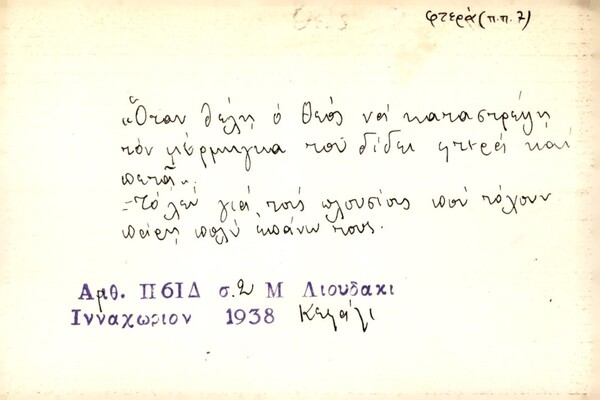 φτερά (π.π. 7)
«Ὅταν θέλῃ ὁ Θεός νά καταστρέψῃ
τόν μέρμηγκα τοῦ δίδει φτερά καί
πετᾶ».
- Τό λέν γιά τούς πλουσίους πού τόχουν
πάρῃ πολύ ἐπάνω τους.
Αριθ. Π6ΙΔ σ. 2 Μ Λιουδακι
Ινναχωριον 1938 Κεφάλι